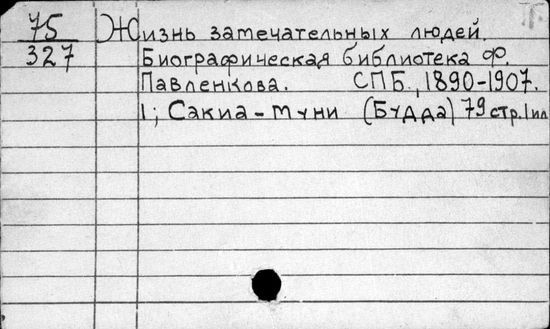 75 Жизнь замечательных людей.
327 Биографическая библиотека Ф.
Павленкова. СПБ., 1890-1907.
1; Сакиа-Муни (Будда) 79 стр. 1 ил